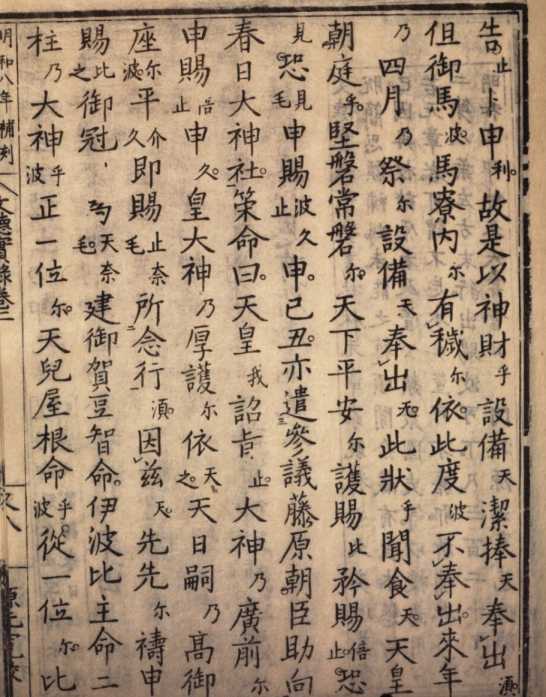 告止申利故是以神財乎設備天潔捧天奉出
但御馬波馬寮内尓有穢尓依此度波不奉出來年
乃四月乃祭尓設備天奉出此狀乎聞食天天皇
朝庭乎堅磐常磐尓天下平安尓護賜比矜賜倍止恐
見恐見毛申賜波久止申己丑亦遣參議藤原朝臣助向
春日大神社策命曰天皇我詔旨止大神乃廣前尓
申賜倍止申久皇大神乃厚護尓依天之天日嗣乃髙御
座尓波平介久即賜止奈毛所念行因玆天先先尓禱申
賜比之御冠天奈毛建御賀豆智命伊波比主命二
柱乃大神乎波正一位尓天兒屋根命乎波從一位尓比
明和八年補刻 文德實錄卷二